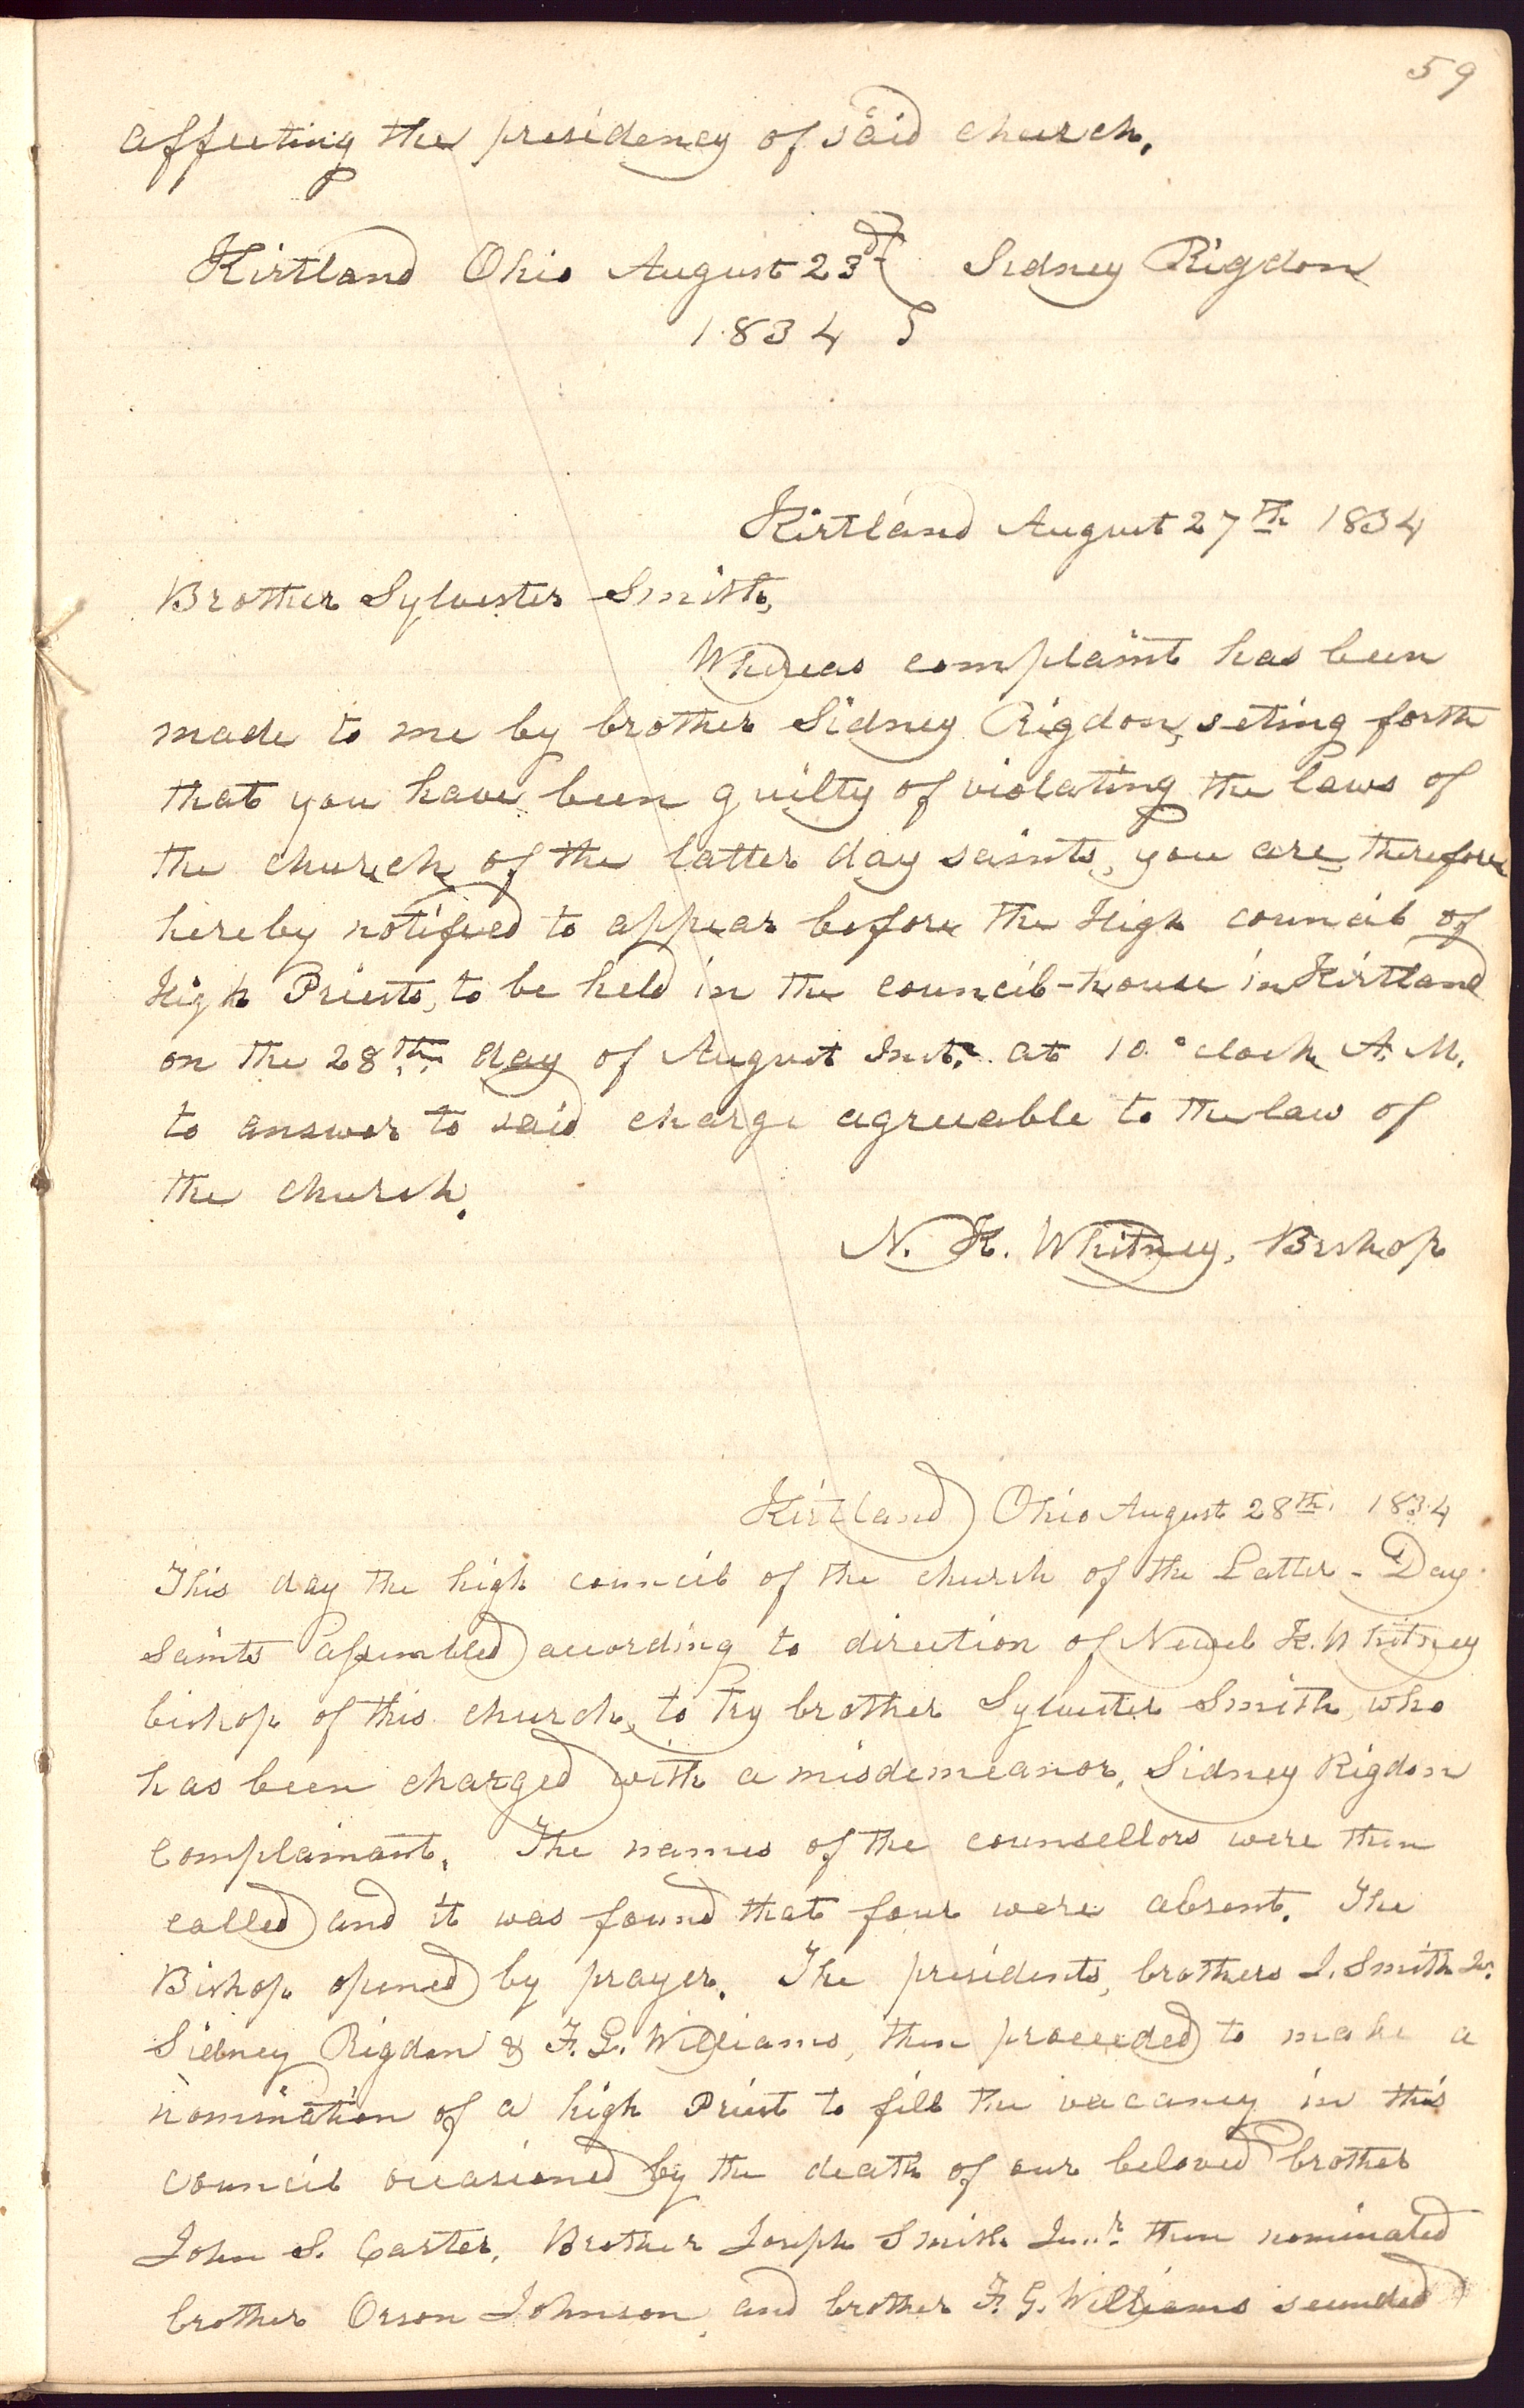 59
affecting the presidency of said church.
Kirtland Ohio August 23d } Sidney Rigdon
1834 }
Kirtland August 27th 1834
Brother Sylvester Smith,
Whereas complaint has been
made to me by brother Sidney Rigdon, seting forth
that you have been guilty of violating the laws of
the church of the latter day saints, you are therefore
hereby notified to appear before the High council of
High Priests, to be held in the council-house in Kirtland
on the 28th. day of August Inst. at 10 °clock A. M.
to answer to said charge agreeable to the law of
the church.
N. K. Whitney, Bishop
Kirtland Ohio August 28th. 1834
This day the high council of the church of the Latter-Day
Saints assembled according to direction of Newel K. Whitney
bishop of this church, to try brother Sylvester Smith, who
has been charged with a misdemeanor, Sidney Rigdon
complainant. The names of the counsellors were then
called and it was found that four were absent. The
Bishop opened by prayer. The presidents, brothers J. Smith Jr.
Sidney Rigdon & F. G. Williams, then proceeded to make a
nomination of a high Priest to fill the vacancy in this
council occasioned by the death of our beloved brother
John S. Carter. Brother Joseph Smith Junr. then nominated
brother Orson Johnson, and brother F. G. Williams seconded